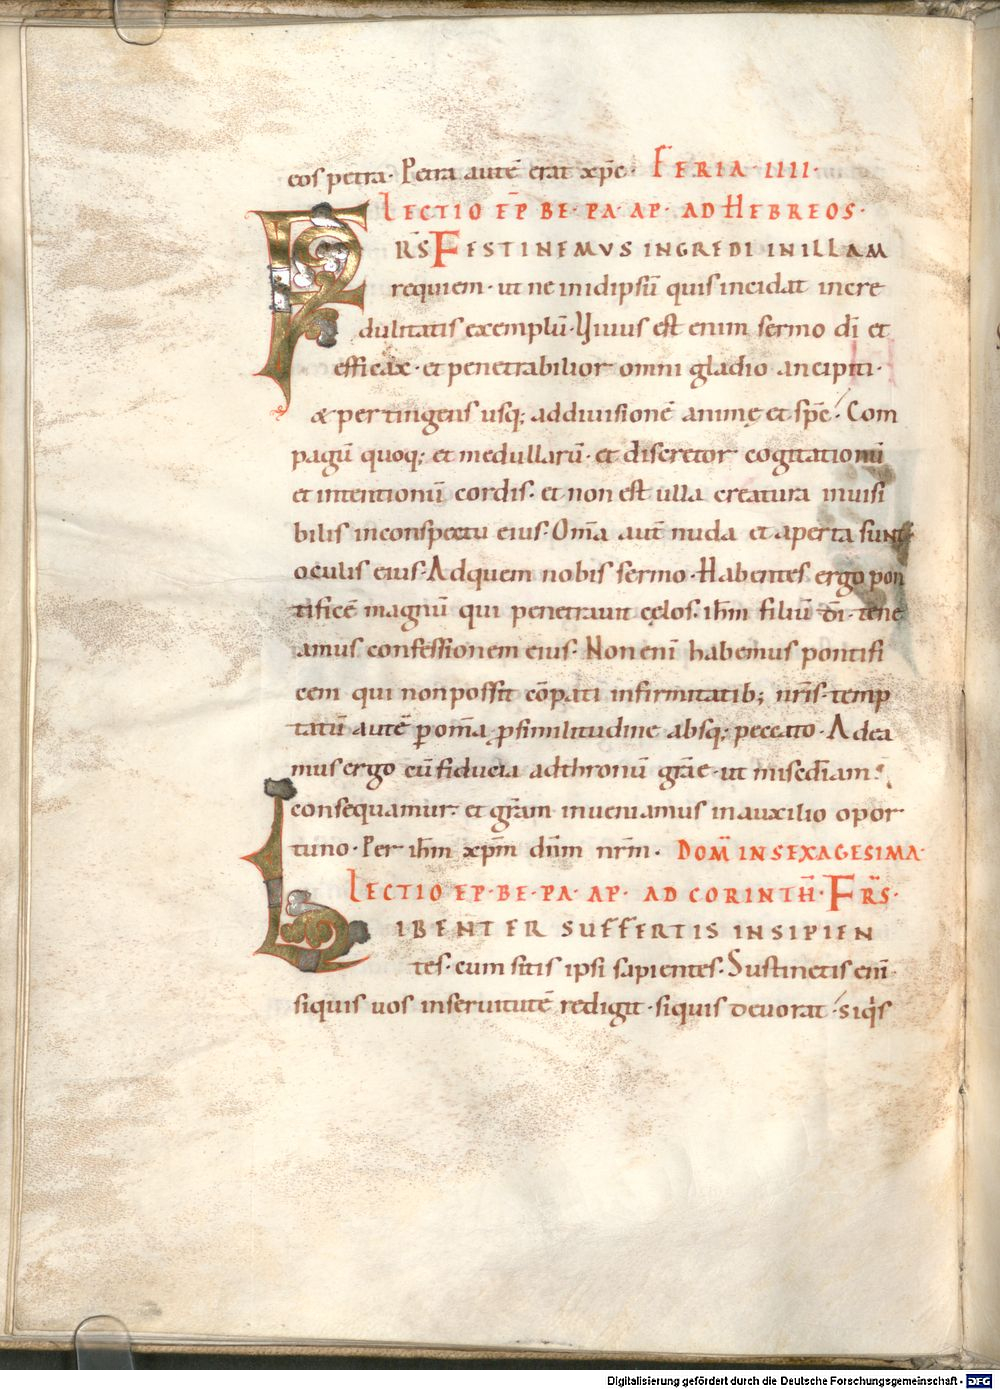 eos petra· Petra autē erat xp̄c· FERIA·IIII·
LECTIO EP̄ BE·PA·AP· AD HEBREOS·
FR̄S FESTINEMUS INGREDI IN ILLAM
requiem· ut ne in idipsū quis incidat incre
dulitatis exemplū· Vivus est enim sermo dī et
efficax· et penetrabilior omni gladio ancipiti·
& pertingens usq; ad divisionē animę et sp̄c· Com
pagū quoq; et medullarū· et discretor cogitationū
et intentionū cordis· et non est ulla creatura invisi
bilis in conspectu eius· Om̄a aut̄ nuda et aperta sunt
oculis eius· Ad quem nobis sermo· Habentes ergo pon
tificē magnū qui penetravit cęlos· ih̄m filiū dī· tene
amus confessionem eius· Non enī habemus pontifi
cem qui non possit cōpati infirmitatib; nr̄is· temp
tatū autē p om̄a p similitudine absq; peccato· Adea
mus ergo cū fiducia ad thronū grāe· ut misedīam
consequamur· et grām inveniamus in auxilio opor
tuno· Per ih̄m xp̄m dn̄m nr̄m· DOM̄ IN SEXAGESIMA·
LECTIO EP·BE·PA·AP· AD CORINTH̄· FR̄S·
LIBENTER SUFFERTIS INSIPIEN
tes· cum sitis ipsi sapientes· Sustinetis enī·
siquis vos in servitutē redigit· siquis devorat· siq̄s
Digitalisierung gefördert durch die Deutsche Forschungsgemeinschaft - DFG